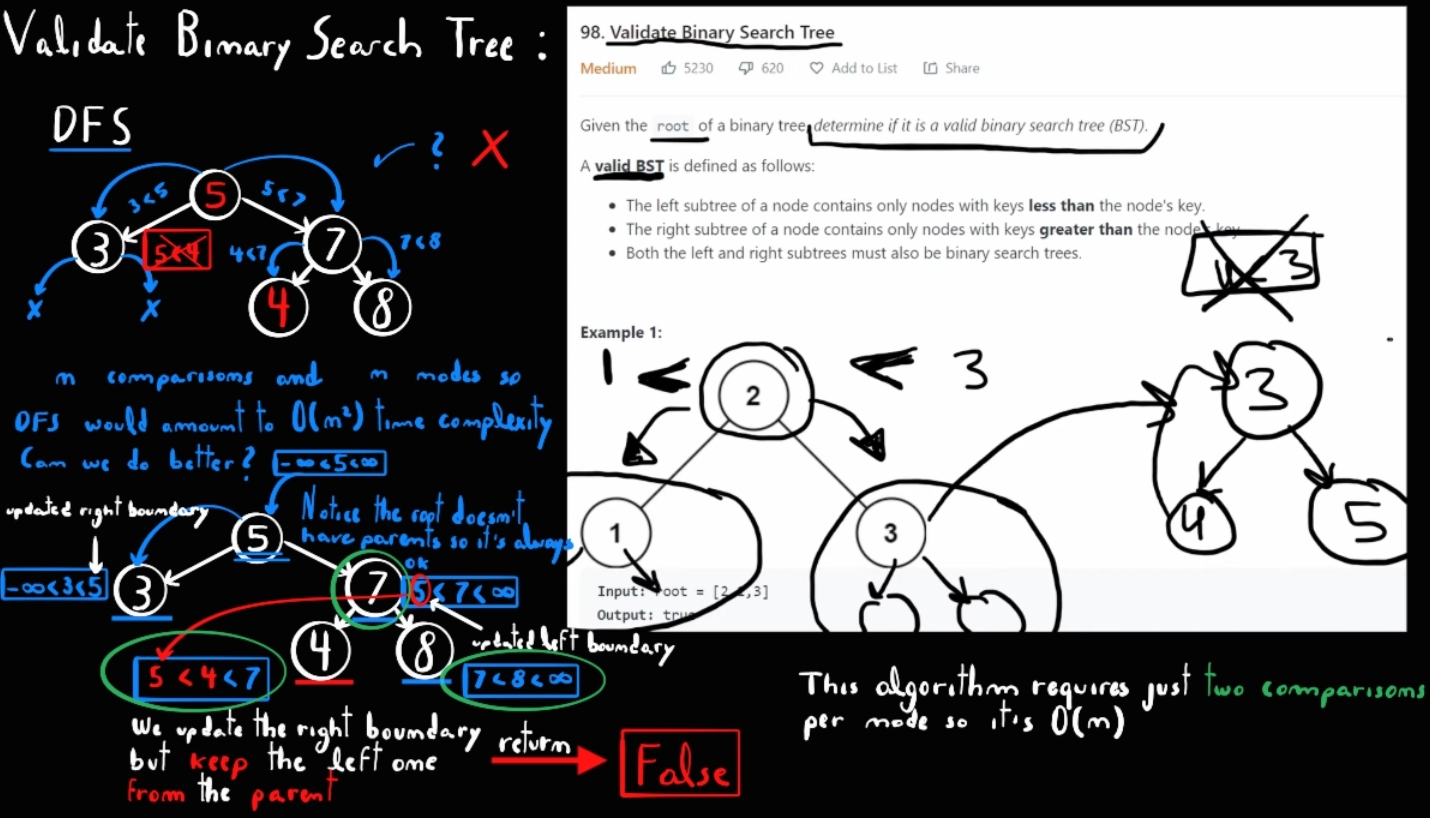 Validate Binary Search Tree :
DFS
?
3<5
5
5<7
3
5<4
4<7
7
7<8
x
x
4
8
n comparisons and n nodes so
DFS would amount to O(n²) time complexity
Can we do better?
-∞<5<∞
updated right boundary
Notice the root doesn't
have parents so it's always
ok
5
-∞<3<5
3
7
5<7<∞
4
8
updated left boundary
5<4<7
7<8<∞
We update the right boundary
but keep the left one
from the parent
return
False
98. Validate Binary Search Tree
Medium
5230
620
Add to List
Share
Given the root of a binary tree, determine if it is a valid binary search tree (BST).
A valid BST is defined as follows:
• The left subtree of a node contains only nodes with keys less than the node's key.
• The right subtree of a node contains only nodes with keys greater than the node's key.
• Both the left and right subtrees must also be binary search trees.
3
Example 1:
1 <
2
< 3
1
3
3
4
5
Input: root = [2,1,3]
Output: true
This algorithm requires just two comparisons
per node so it's O(n)